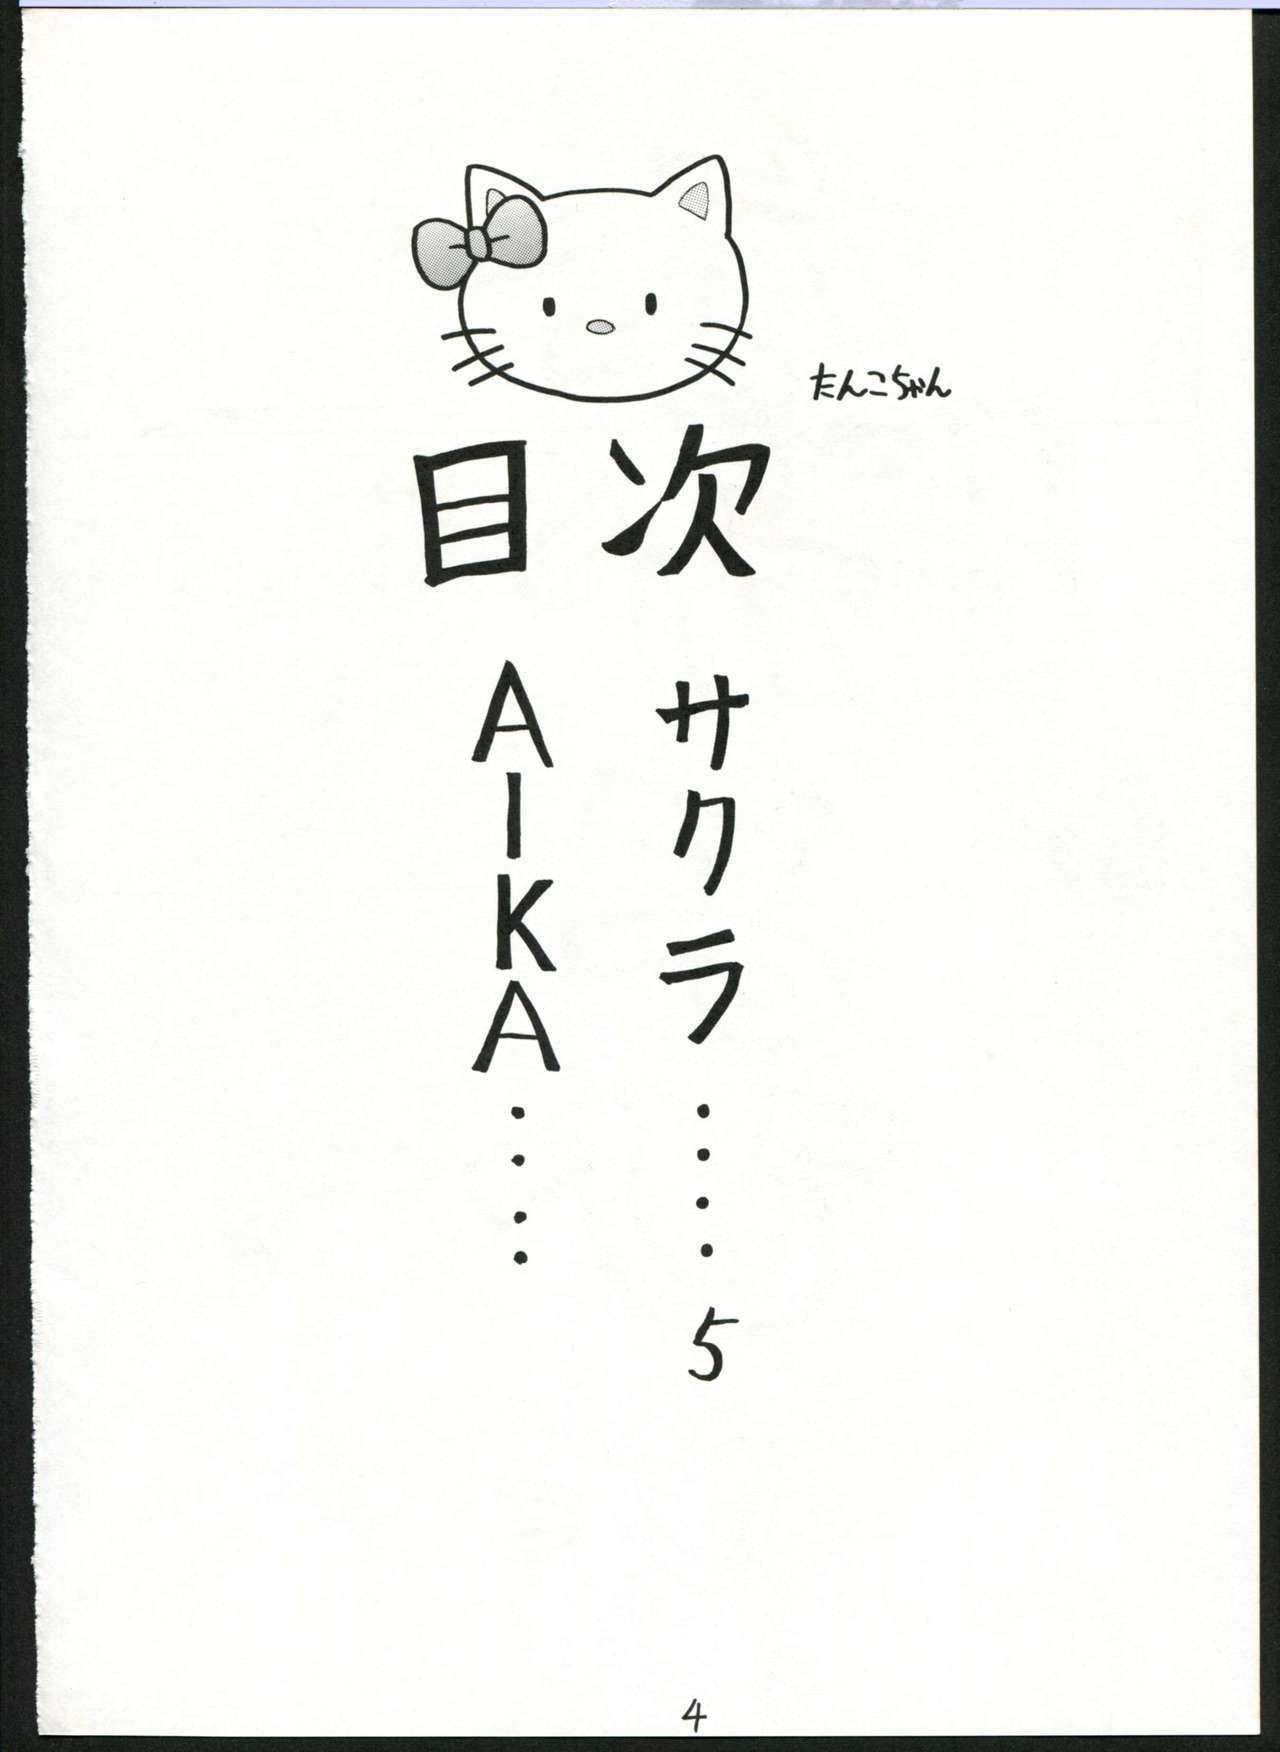 たんこちゃん
目次
サクラ････5
AIKA････
4